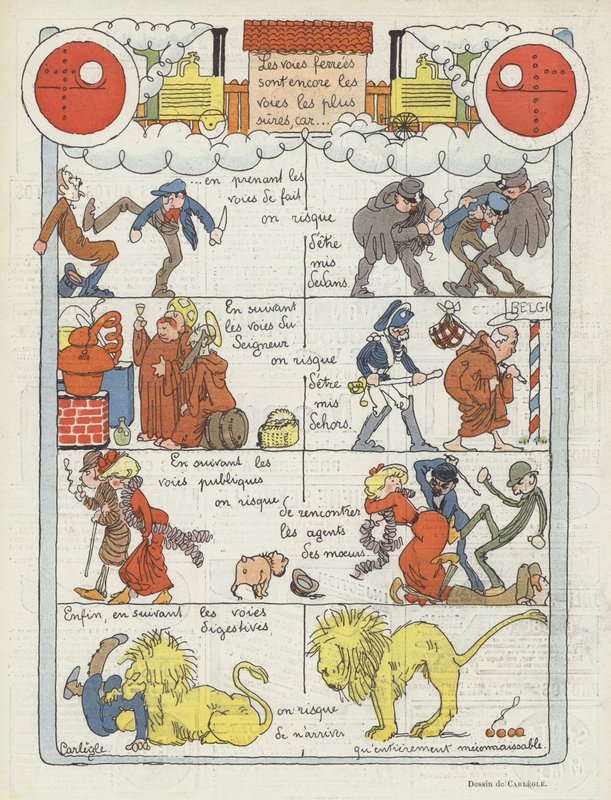 Les voies ferrées
sont encore les
voies les plus
sûres, car...
...en prenant les
voies de fait
on risque
d'être
mis
dedans.
En suivant
les voies du
Seigneur
on risque
d'être
mis
dehors.
BELGI
En suivant les
voies publiques
on risque
de rencontrer
les agents
des mœurs.
Enfin, en suivant les voies
digestives
on risque
de n'arriver
qu'entièrement méconnaissable.
Carlègle.
Dessin de CARLÈGLE.